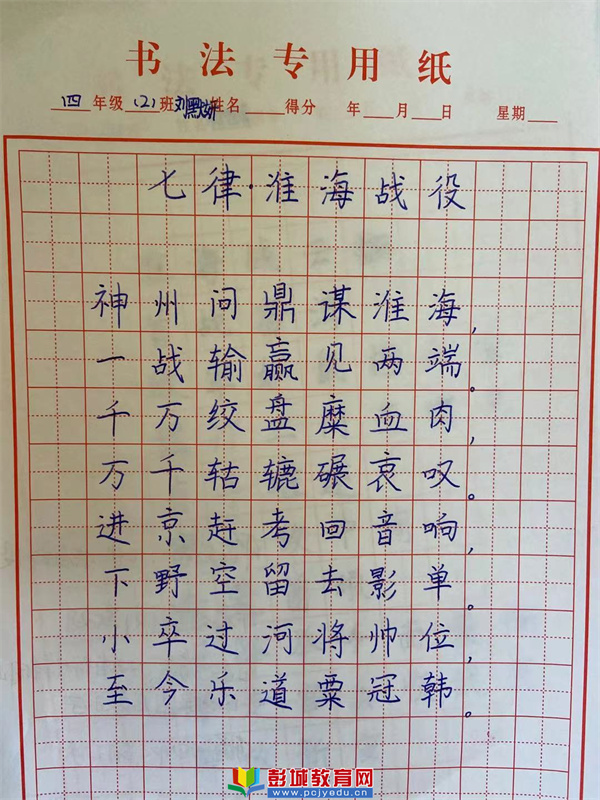 书法专用纸
四年级(2)班刘默妍姓名 得分 年 月 日 星期
七律·淮海战役
神州问鼎谋淮海，
一战输赢见两端。
千万绞盘糜血肉，
万千轱辘碾哀叹。
进京赶考回音响，
下野空留去影单。
小卒过河将帅位，
至今乐道粟冠韩。
彭城教育网
www.pcjyedu.cn